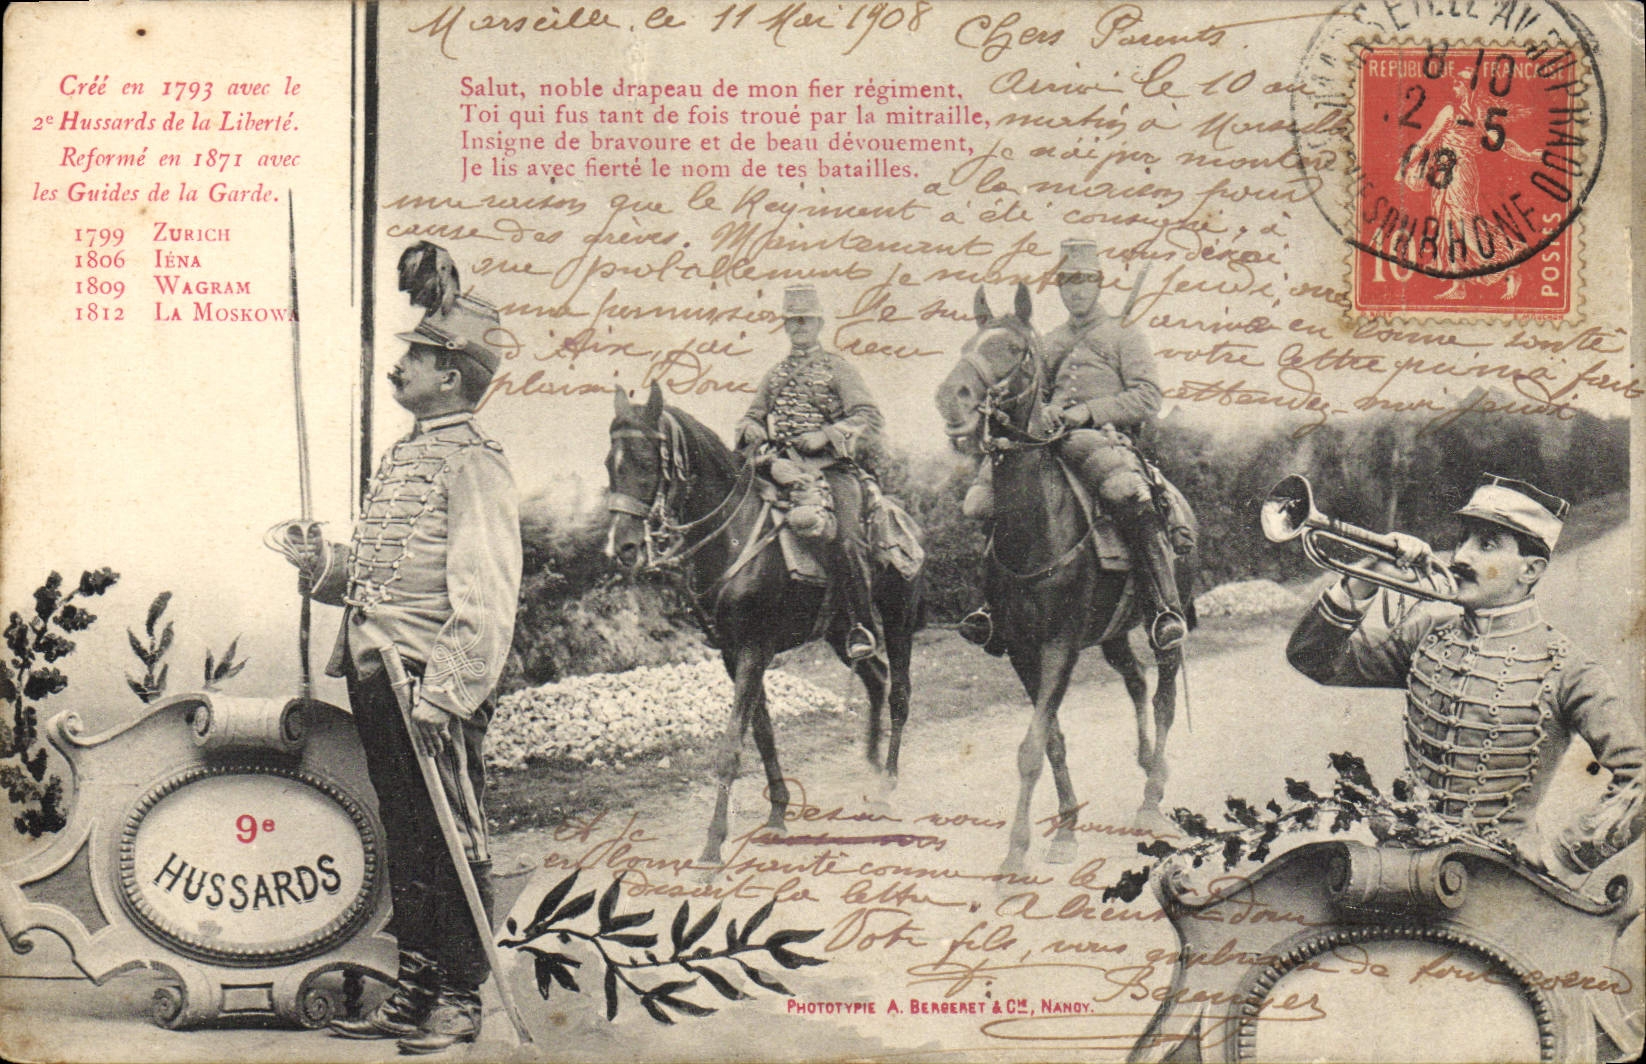 Marseille, le 11 Mai 1908
Chers Parents
Créé en 1793 avec le
2e Hussards de la Liberté.
Reformé en 1871 avec
les Guides de la Garde.
1799 ZURICH
1806 IÉNA
1809 WAGRAM
1812 LA MOSKOWA
Salut, noble drapeau de mon fier régiment,
Toi qui fus tant de fois troué par la mitraille,
Insigne de bravoure et de beau dévouement,
Je lis avec fierté le nom de tes batailles.
Arrivé le 10 au
matin à Marseille
je n'ai pu monter
a la maison pour
une raison que le Regiment à été consigné, à
cause des grèves. Maintenant je vous dirai
que probablement je monterai jeudi, avec
une permission. Je suis arrivé en bonne santé
d'Aix, j'ai recu votre lettre qui m'a fait
plaisir. Donc attendez-moi jeudi
Et je desire vous trouver
en bonne santé comme me le
disait la lettre. A bientôt donc
Votre fils, vous embrasse de tout coeur
F. Berenger
RÉPUBLIQUE FRANÇAISE
10
POSTES
8 10
12 -5
08
9e
HUSSARDS
PHOTOTYPIE A. BERGERET & Cie, NANCY.